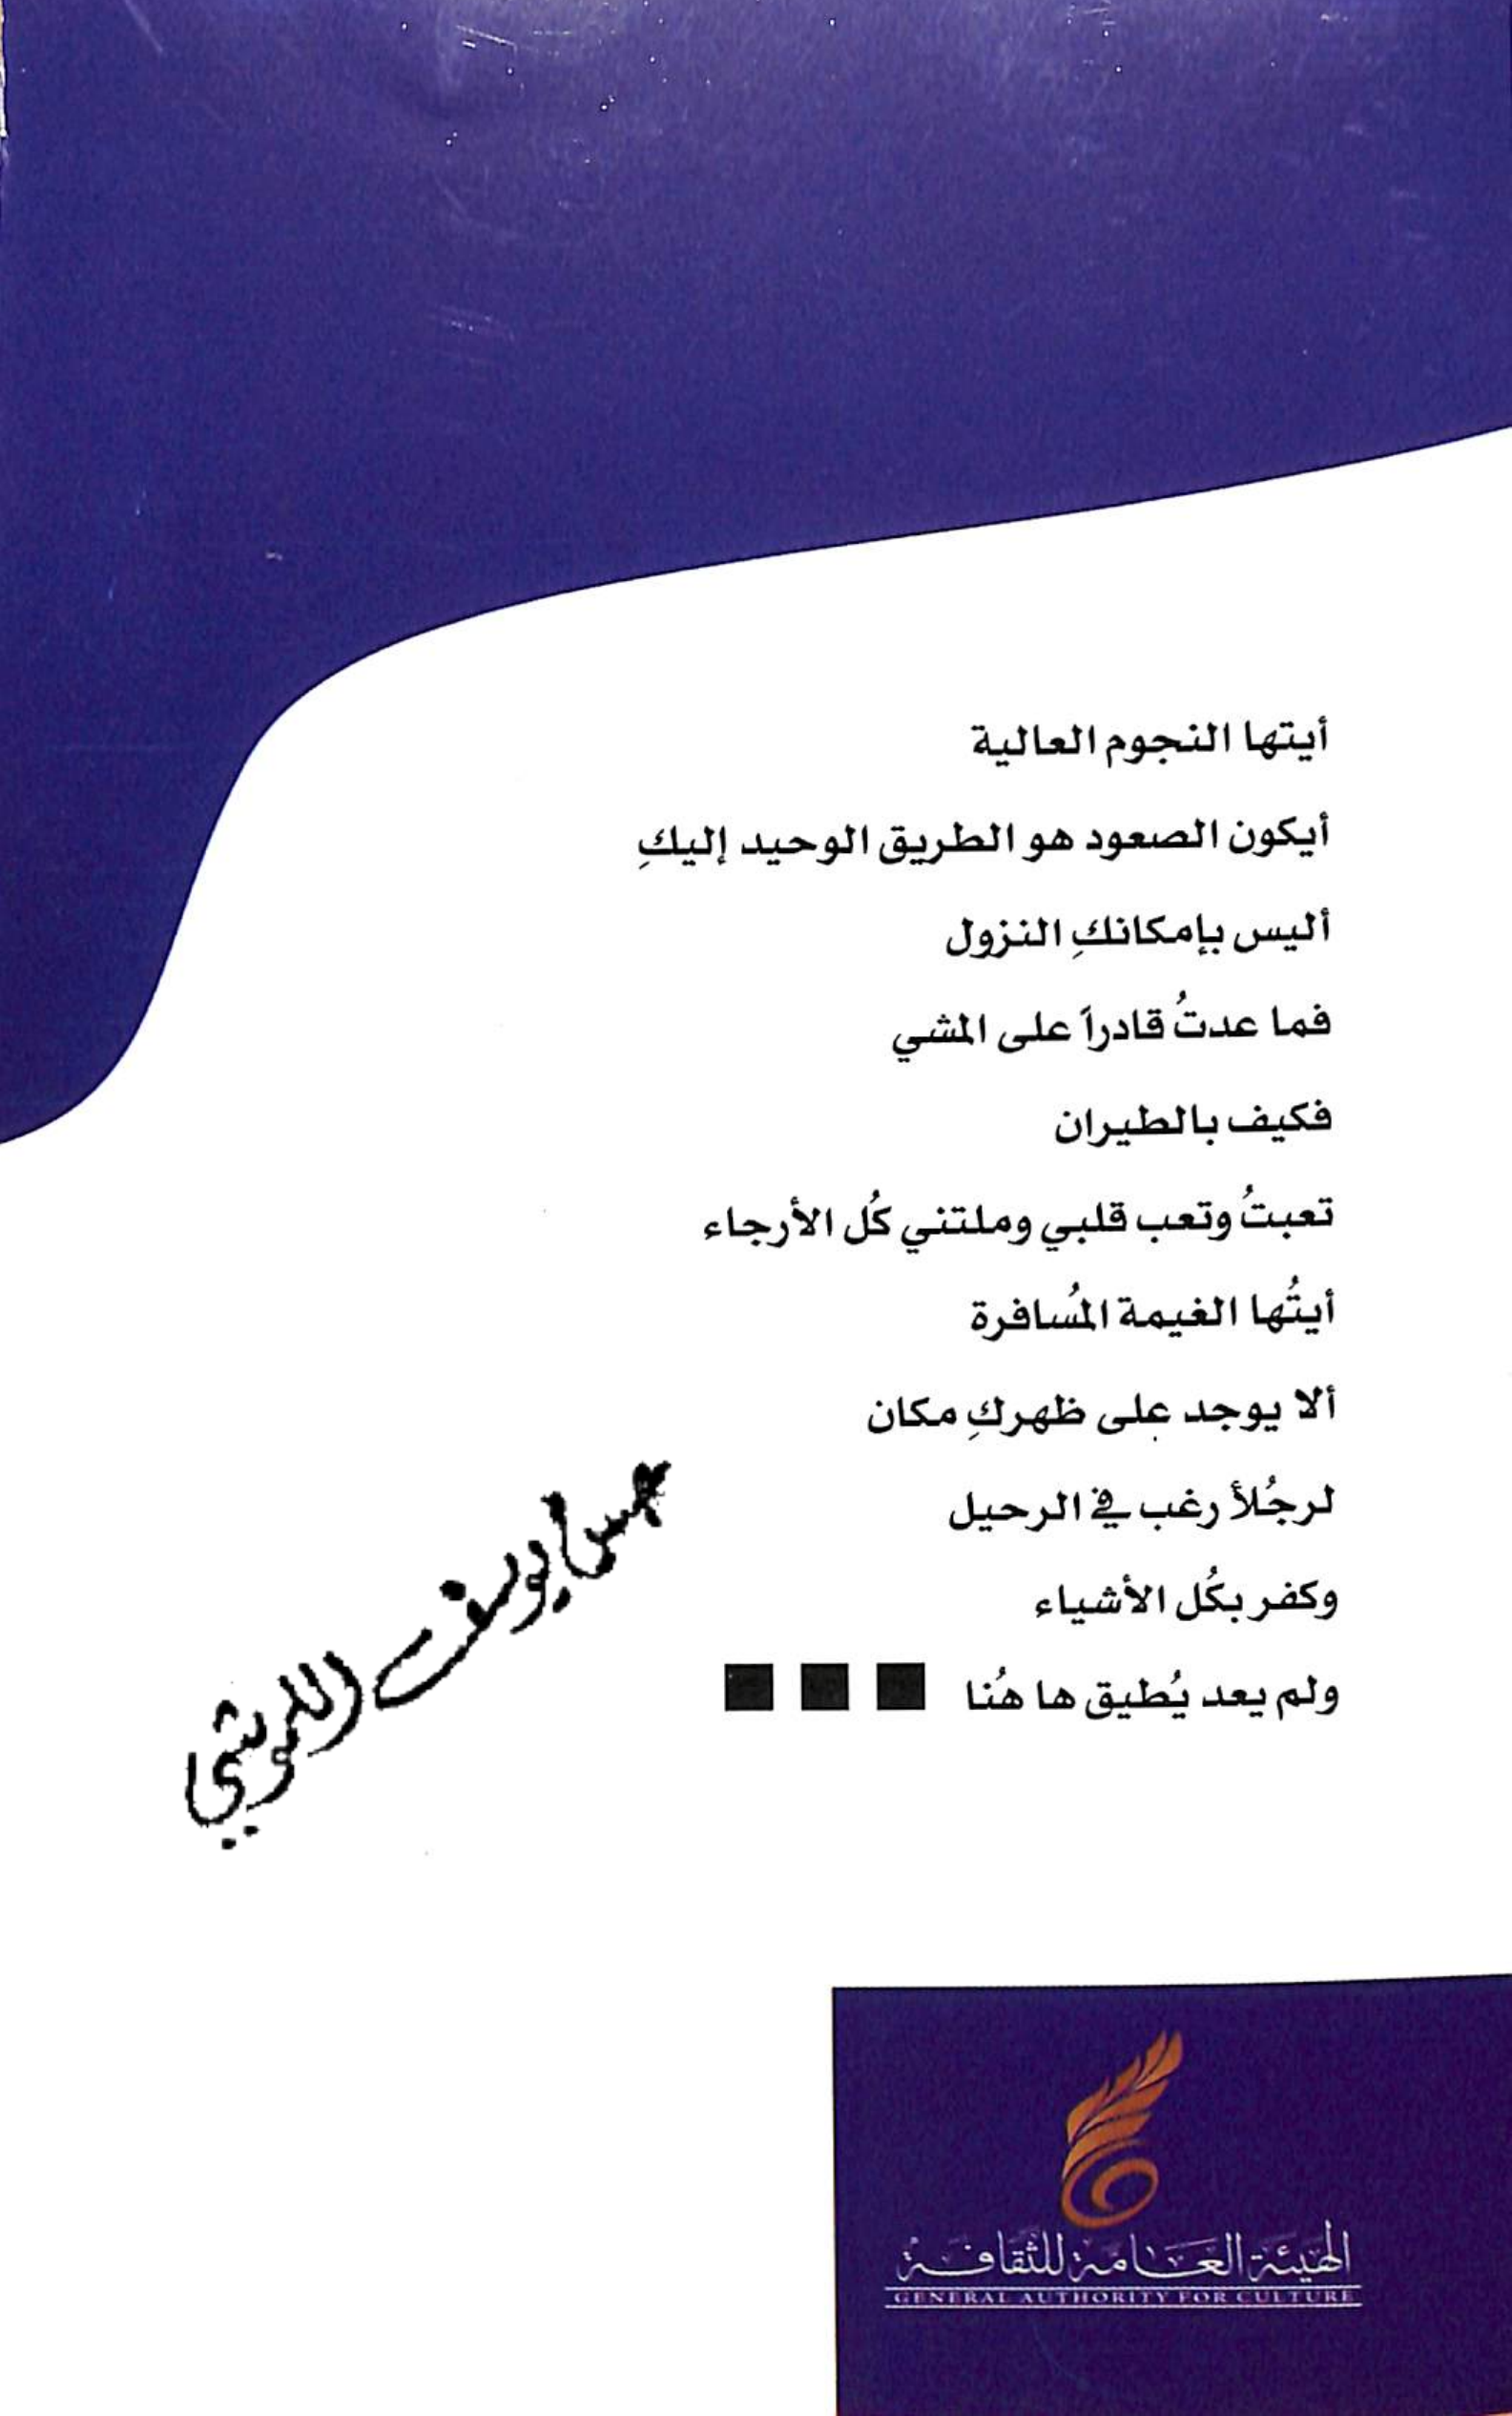 أيتها النجوم العالية
أيكون الصعود هو الطريق الوحيد إليكِ
أليس بإمكانكِ النزول
فما عدتُ قادراً على المشي
فكيف بالطيران
تعبتُ وتعب قلبي وملتني كُل الأرجاء
أيتُها الغيمة المُسافرة
ألا يوجد على ظهركِ مكان
لرجُلأ رغب في الرحيل
وكفر بكُل الأشياء
ولم يعد يُطيق ها هُنا ■ ■ ■
يوسف
الهيئة العامة للثقافة
GENERAL AUTHORITY FOR CULTURE